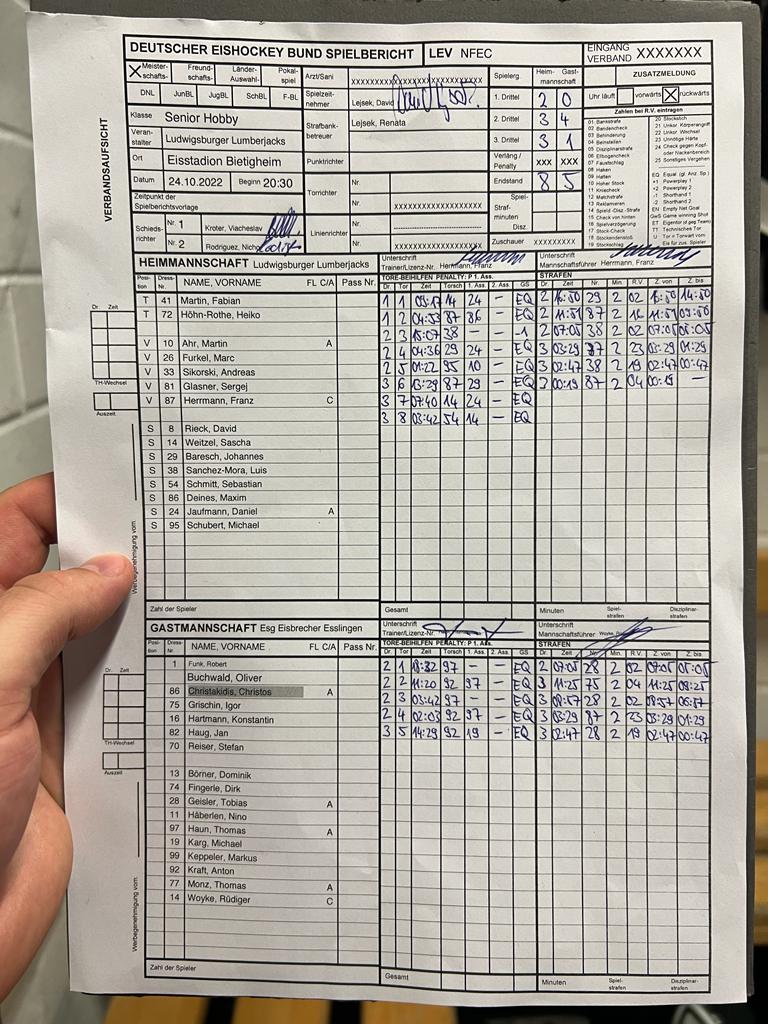 DEUTSCHER EISHOCKEY BUND SPIELBERICHT LEV NFEC EINGANG VERBAND XXXXXXX
X Meister-schafts- Freund-schafts- Länder-Auswahl- Pokal-spiel
DNL JunBL JugBL SchBL F-BL
Klasse Senior Hobby
Veran-stalter Ludwigsburger Lumberjacks
Ort Eisstadion Bietigheim
Datum 24.10.2022 Beginn 20:30
Zeitpunkt der Spielberichtsvorlage
Schieds-richter Nr. 1 Kroter, Viacheslav
Nr. 2 Rodriguez, Nicho
Arzt/Sani
Spielzeit-nehmer Lejsek, David
Strafbank-betreuer Lejsek, Renata
Punktrichter
Torrichter Nr.
Nr. XXXXXXXXXXXXXXXXXX
Linienrichter Nr.
Nr. XXXXXXXXXXXXXXXXXX
Spielerg. Heim- Gast-mannschaft
1. Drittel 2 0
2. Drittel 3 4
3. Drittel 3 1
Verläng./Penalty XXX XXX
Endstand 8 5
Spiel-
Straf-minuten
Disz.
Zuschauer XXXXXXXXX
ZUSATZMELDUNG
Uhr läuft vorwärts X rückwärts
Zahlen bei R.V. eintragen
01 Bankstrafe
02 Bandencheck
03 Behinderung
04 Beinstellen
05 Disziplinarstrafe
06 Ellbogencheck
07 Faustschlag
08 Haken
09 Halten
10 Hoher Stock
11 Kniecheck
12 Matchstrafe
13 Reklamieren
14 Spield.-Disz.-Strafe
15 Check von hinten
16 Spielverzögerung
17 Stock-Check
18 Stockendstoß
19 Stockschlag
20 Stockstich
21 Unkor. Körperangriff
22 Unkor. Wechsel
23 Unnötige Härte
24 Check gegen Kopf- oder Nackenbereich
25 Sonstiges Vergehen
EQ Equal (gl. Anz. Sp.)
+1 Powerplay 1
+2 Powerplay 2
-1 Shorthand 1
-2 Shorthand 2
EN Empty Net Goal
GwS Game winning Shot
ET Eigentor (d geg Team)
TT Technisches Tor
VERBANDSAUFSICHT
HEIMMANNSCHAFT Ludwigsburger Lumberjacks
Unterschrift Trainer/Lizenz-Nr. Herrmann, Franz
Unterschrift Mannschaftsführer Herrmann, Franz
Posi-tion Dress-Nr. NAME, VORNAME FL C/A Pass Nr.
TORE-BEIHILFEN PENALTY: P 1. Ass.
Dr. Tor Zeit Torsch 1. Ass. 2. Ass. GS
STRAFEN
Dr. Zeit Nr. Min. R.V. Z. von Z. bis
T 41 Martin, Fabian
T 72 Höhn-Rothe, Heiko
V 10 Ahr, Martin A
V 26 Furkel, Marc
V 33 Sikorski, Andreas
V 81 Glasner, Sergej
V 87 Herrmann, Franz C
S 8 Rieck, David
S 14 Weitzel, Sascha
S 29 Baresch, Johannes
S 38 Sanchez-Mora, Luis
S 54 Schmitt, Sebastian
S 86 Deines, Maxim
S 24 Jaufmann, Daniel A
S 95 Schubert, Michael
1 1 09:17 14 24 - EQ
1 2 04:53 87 86 - EQ
2 3 15:07 38 - - -1
2 4 04:36 29 24 - EQ
2 5 01:22 95 10 - EQ
3 6 13:29 87 29 - EQ
3 7 07:40 14 24 - EQ
3 8 03:42 54 14 - EQ
2 16:50 29 2 02 16:50 14:50
2 11:51 87 2 16 11:51 09:50
2 07:05 38 2 02 07:05 05:05
3 03:29 97 2 23 03:29 01:29
3 02:47 38 2 19 02:47 00:47
3 00:19 87 2 04 00:19 -
Dr. Zeit
TH-Wechsel
Auszeit
Werbegenehmigung vom:
Zahl der Spieler Gesamt Minuten Spiel-strafen Disziplinar-strafen
GASTMANNSCHAFT Esg Eisbrecher Esslingen
Unterschrift Trainer/Lizenz-Nr.
Unterschrift Mannschaftsführer
Posi-tion Dress-Nr. NAME, VORNAME FL C/A Pass Nr.
TORE-BEIHILFEN PENALTY: P 1. Ass.
Dr. Tor Zeit Torsch 1. Ass. 2. Ass. GS
STRAFEN
Dr. Zeit Nr. Min. R.V. Z. von Z. bis
1 Funk, Robert
Buchwald, Oliver
86 Christakidis, Christos A
75 Grischin, Igor
16 Hartmann, Konstantin
82 Haug, Jan
70 Reiser, Stefan
13 Börner, Dominik
74 Fingerle, Dirk
28 Geisler, Tobias A
11 Häberlen, Nino
97 Haun, Thomas A
19 Karg, Michael
99 Keppeler, Markus
92 Kraft, Anton
77 Monz, Thomas A
14 Woyke, Rüdiger C
2 1 18:32 97 - - EQ
2 2 11:20 92 97 - EQ
2 3 03:42 97 - - EQ
2 4 02:03 92 97 - EQ
3 5 14:29 92 19 - EQ
2 07:05 28 2 02 07:05 05:05
3 11:25 75 2 04 11:25 09:25
3 08:57 28 2 02 08:57 06:57
3 03:29 87 2 23 03:29 01:29
3 02:47 28 2 19 02:47 00:47
Dr. Zeit
TH-Wechsel
Auszeit
Werbegenehmigung vom:
Zahl der Spieler Gesamt Minuten Spiel-strafen Disziplinar-strafen